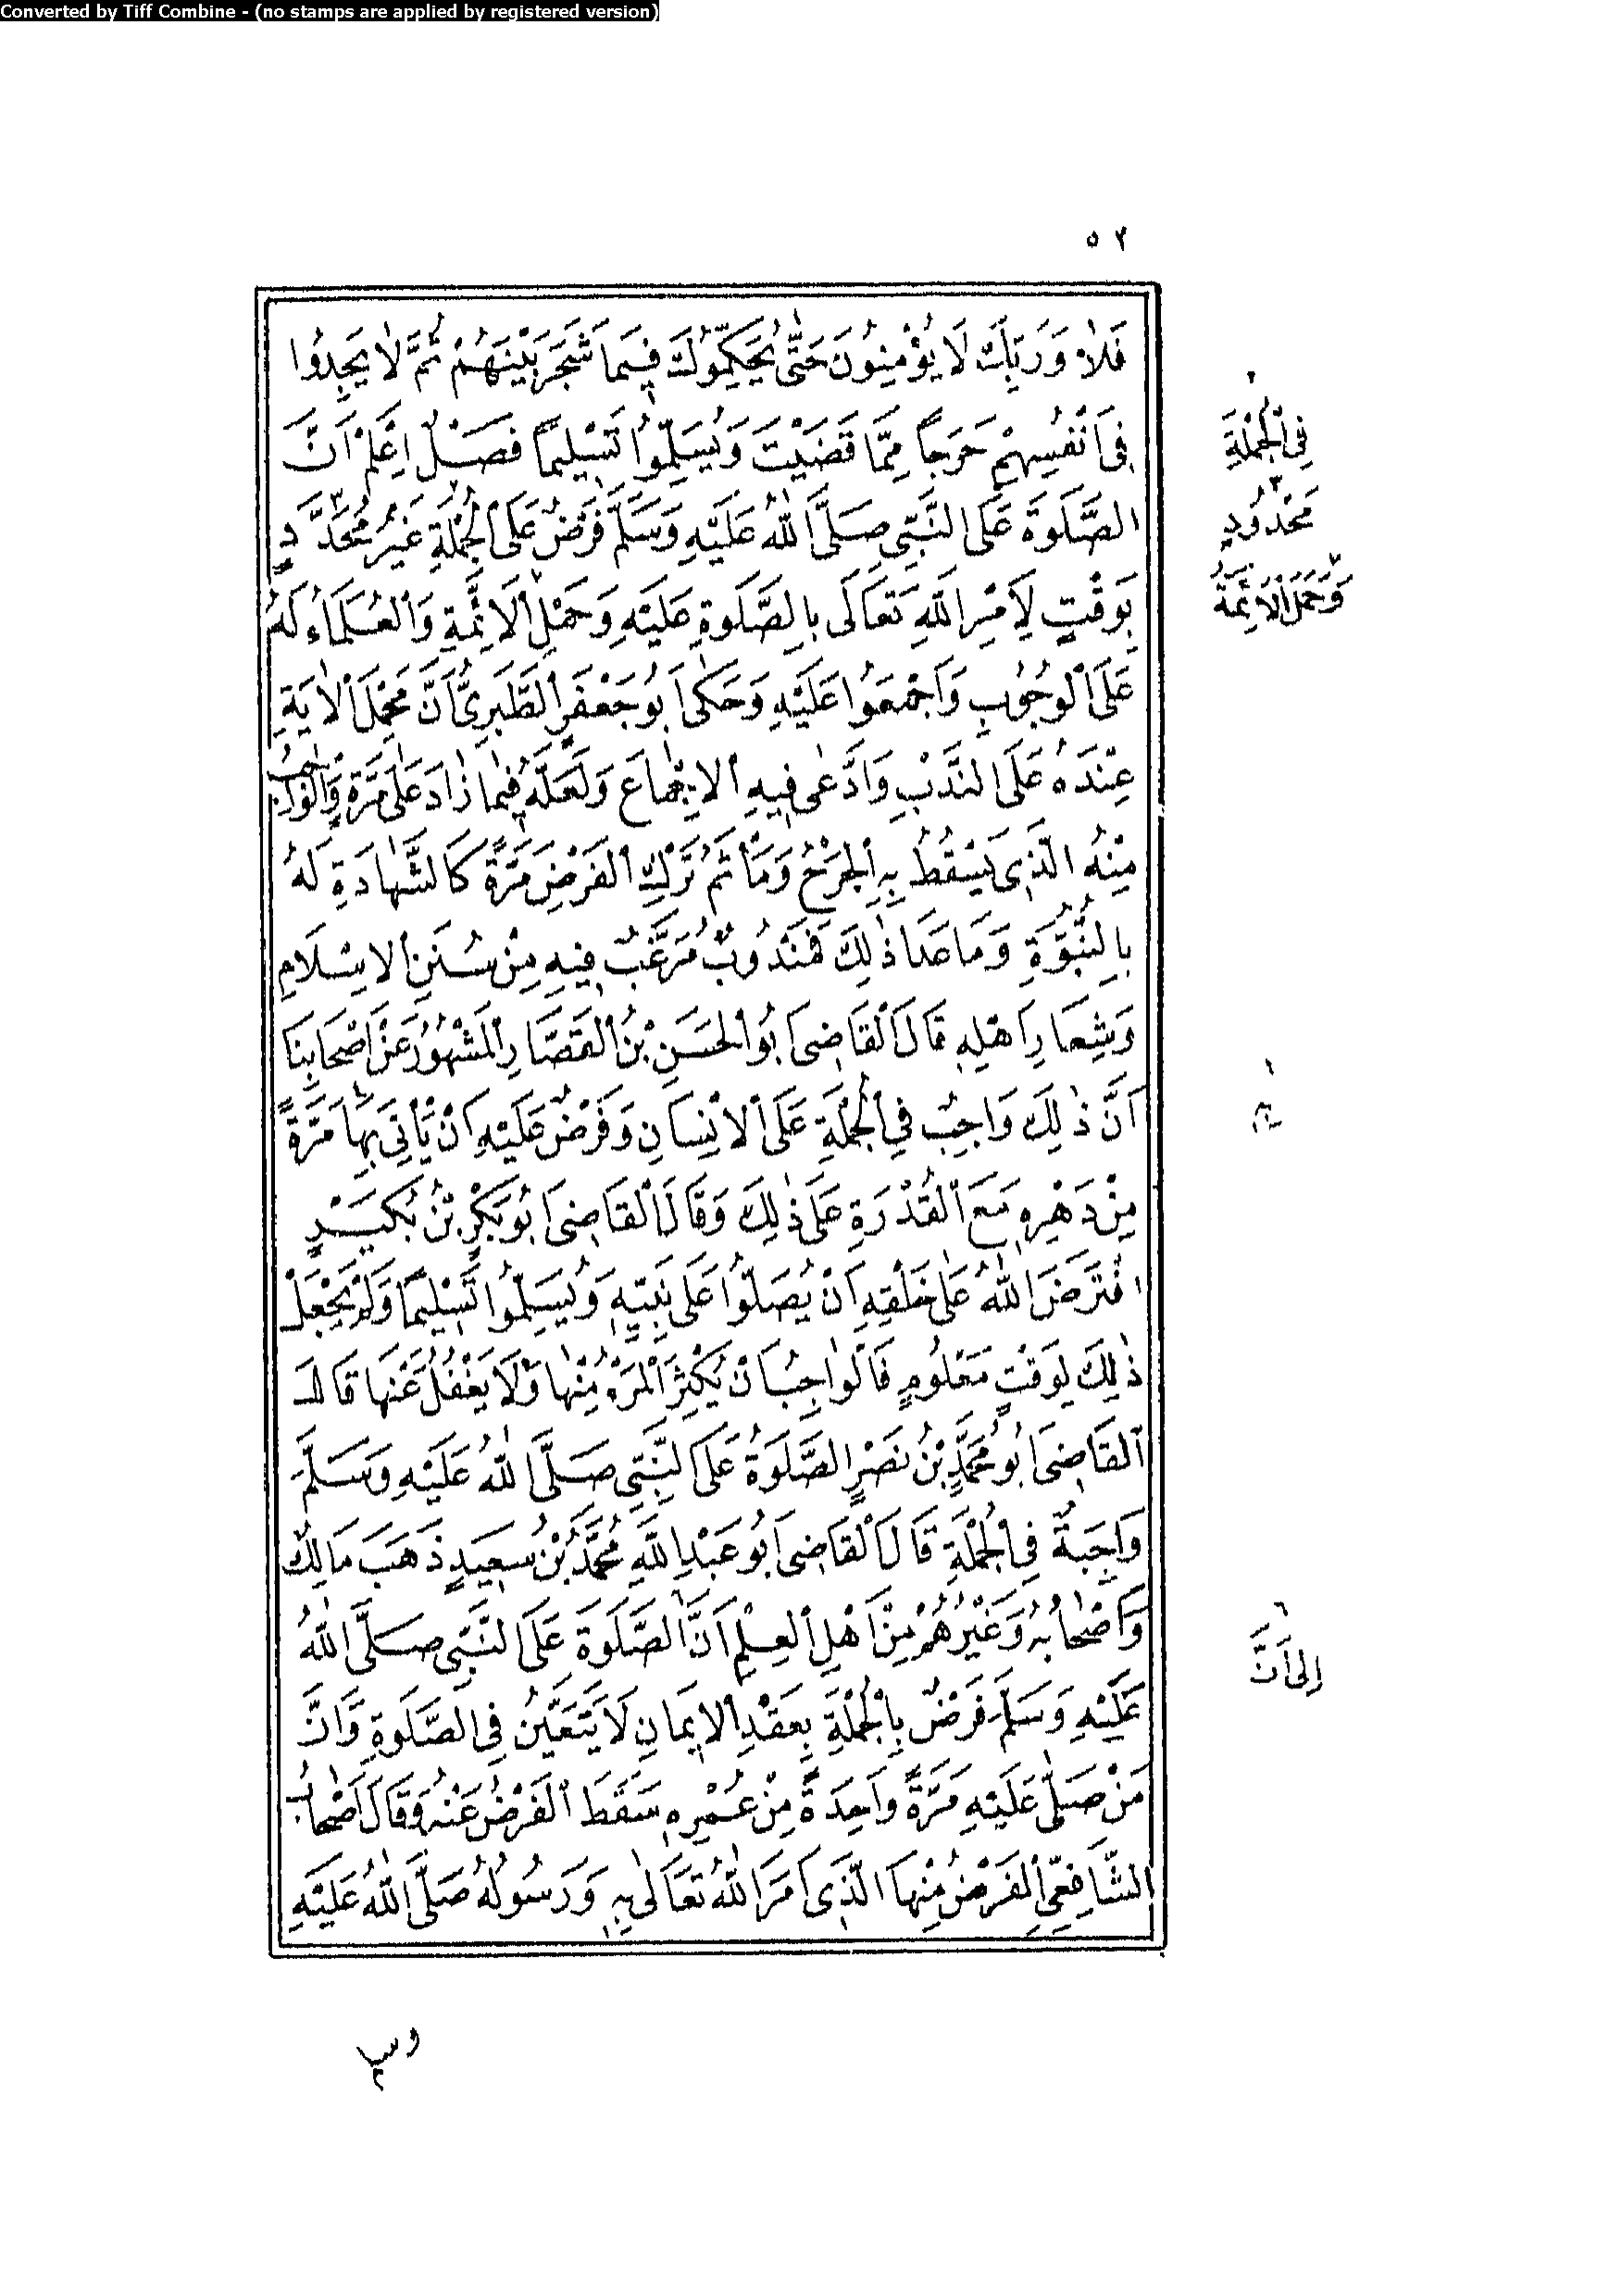 Converted by Tiff Combine - (no stamps are applied by registered version)
٥٢
فَلَا وَرَبِّكَ لَا يُؤْمِنُونَ حَتّٰى يُحَكِّمُوكَ فِيمَا شَجَرَ بَيْنَهُمْ ثُمَّ لَا يَجِدُوا
فِى أَنْفُسِهِمْ حَرَجًا مِمَّا قَضَيْتَ وَيُسَلِّمُوا تَسْلِيمًا فَصْلٌ اِعْلَمْ أَنَّ
الصَّلَوةَ عَلَى النَّبِىِّ صَلَّى اللّٰهُ عَلَيْهِ وَسَلَّمَ فَرْضٌ عَلَى الْجُمْلَةِ غَيْرُ مُحَدَّدٍ
بِوَقْتٍ لِأَمْرِ اللّٰهِ تَعَالَى بِالصَّلَوةِ عَلَيْهِ وَحَمْلِ الْأَئِمَّةِ وَالْعُلَمَاءُ لَهُ
عَلَى الْوُجُوبِ وَأَجْمَعُوا عَلَيْهِ وَحَكٰى أَبُو جَعْفَرٍ الطَّبَرِىُّ أَنَّ مَحْمِلَ الْآيَةِ
عِنْدَهُ عَلَى النَّدْبِ وَادَّعٰى فِيهِ الْإِجْمَاعَ وَلَعَلَّهُ فِيمَا زَادَ عَلٰى مَرَّةٍ وَالْوَاجِبُ
مِنْهُ الَّذِى يَسْقُطُ بِهِ الْحَرَجُ وَمَأْثَمُ تَرْكِ الْفَرْضِ مَرَّةً كَالشَّهَادَةِ لَهُ
بِالنُّبُوَّةِ وَمَا عَدَا ذٰلِكَ فَمَنْدُوبٌ مُرَغَّبٌ فِيهِ مِنْ سُنَنِ الْإِسْلَامِ
وَشِعَارِ أَهْلِهِ قَالَ الْقَاضِى أَبُو الْحَسَنِ بْنُ الْقَصَّارِ الْمَشْهُورُ عَنْ أَصْحَابِنَا
أَنَّ ذٰلِكَ وَاجِبٌ فِى الْجُمْلَةِ عَلَى الْإِنْسَانِ وَفَرْضٌ عَلَيْهِ أَنْ يَأْتِىَ بِهَا مَرَّةً
مِنْ دَهْرِهِ مَعَ الْقُدْرَةِ عَلَى ذٰلِكَ وَقَالَ الْقَاضِى أَبُو بَكْرِ بْنُ بُكَيْرٍ
افْتَرَضَ اللّٰهُ عَلٰى خَلْقِهِ أَنْ يُصَلُّوا عَلَى نَبِيِّهِ وَيُسَلِّمُوا تَسْلِيمًا وَلَمْ يَجْعَلْ
ذٰلِكَ لِوَقْتٍ مَعْلُومٍ فَالْوَاجِبُ أَنْ يُكْثِرَ الْمَرْءُ مِنْهَا وَلَا يَغْفُلُ عَنْهَا قَالَ
الْقَاضِى أَبُو مُحَمَّدِ بْنُ نَصْرٍ الصَّلَوةُ عَلَى النَّبِىِّ صَلَّى اللّٰهُ عَلَيْهِ وَسَلَّمَ
وَاجِبَةٌ فِى الْجُمْلَةِ قَالَ الْقَاضِى أَبُو عَبْدِ اللّٰهِ مُحَمَّدُ بْنُ سَعِيدٍ ذَهَبَ مَالِكٌ
وَأَصْحَابُهُ وَغَيْرُهُمْ مِنْ أَهْلِ الْعِلْمِ أَنَّ الصَّلَوةَ عَلَى النَّبِىِّ صَلَّى اللّٰهُ
عَلَيْهِ وَسَلَّمَ فَرْضٌ بِالْجُمْلَةِ بِعَقْدِ الْإِيمَانِ لَا يَتَعَيَّنُ فِى الصَّلَوةِ وَأَنَّ
مَنْ صَلَّى عَلَيْهِ مَرَّةً وَاحِدَةً مِنْ عُمْرِهِ سَقَطَ الْفَرْضُ عَنْهُ وَقَالَ أَصْحَابُ
الشَّافِعِىِّ الْفَرْضُ مِنْهَا الَّذِى أَمَرَ اللّٰهُ تَعَالٰى بِهِ وَرَسُولُهُ صَلَّى اللّٰهُ عَلَيْهِ
٢
فِى الْجُمْلَةِ
٣
مَحْدُودٍ
وَحَمَلَ الْأَئِمَّةُ
٦
إِلٰى أَنَّ